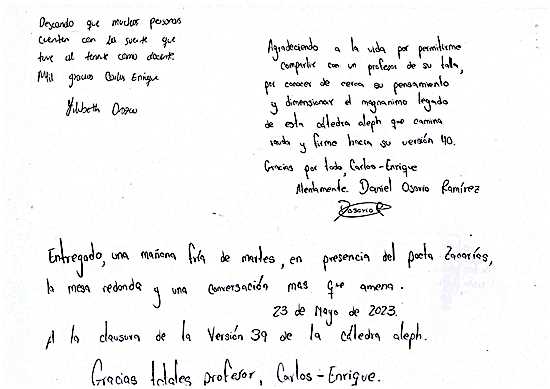 Deseando que muchas personas
cuenten con la suerte que
tuve al tenerte como docente.
Mil gracias Carlos Enrique
Agradeciendo a la vida por permitirme
compartir con un profesor de su talla,
por conocer de cerca su pensamiento
y dimensionar el magnanimo legado
de esta cátedra aleph que camina
sauda y firme hacia su versión 40.
Gracias por todo, Carlos-Enrique
Atentamente. Daniel Osorio Ramírez
Dosorio
Entregado, una mañana fría de martes, en presencia del poeta Zacarías,
la mesa redonda y una conversación mas que amena.
23 de Mayo de 2023.
A la clausura de la Versión 39 de la cátedra aleph.
Gracias totales profesor, Carlos-Enrique.